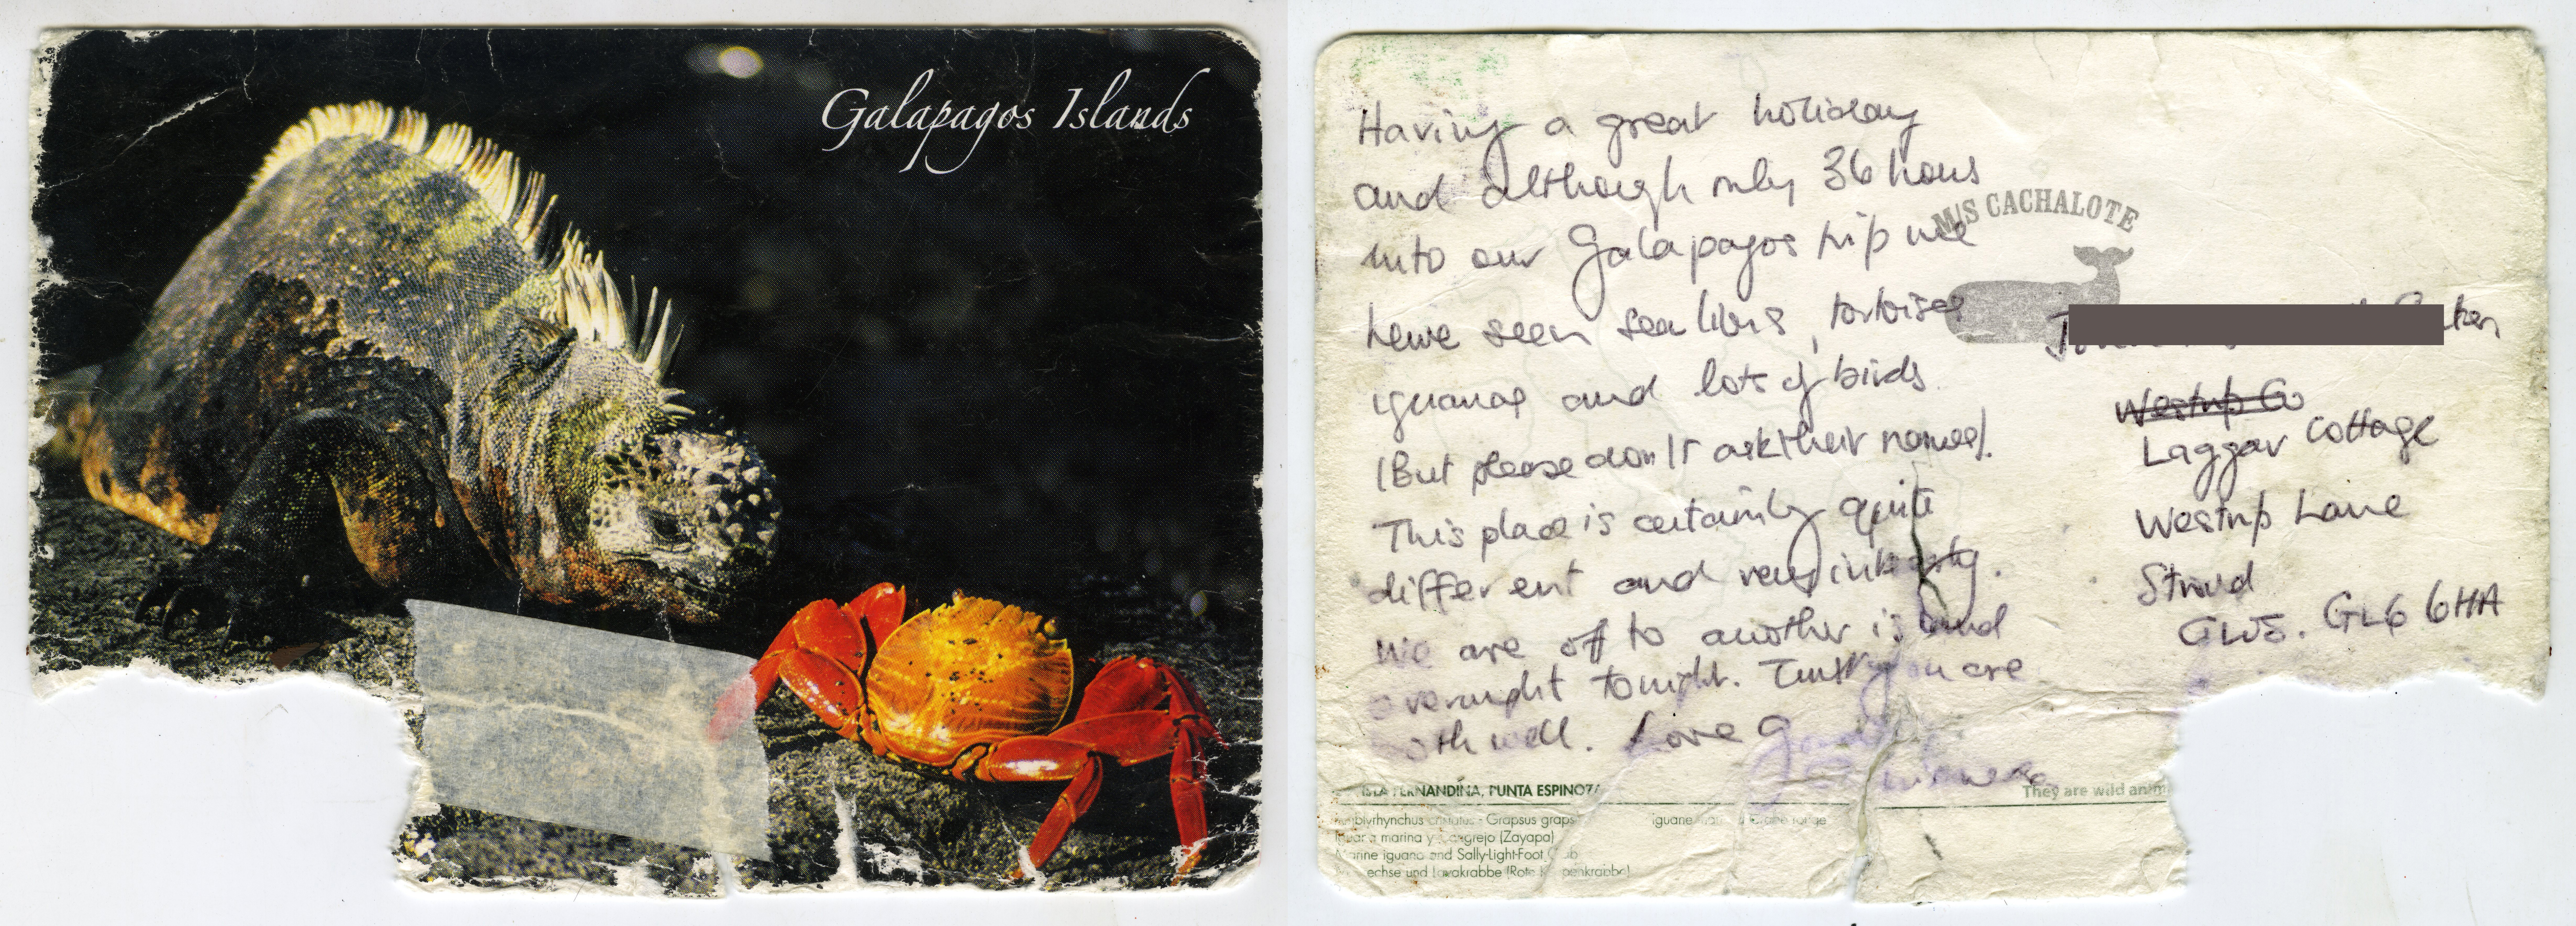 Galapagos Islands
Having a great holiday
and although only 36 hours
into our Galapagos trip we
have seen sea lions, tortoises
iguanas and lots of birds.
(But please don't ask their names).
This place is certainly quite
different and very
We are off to another island
overnight tonight. Trust you are
both well. Love
M/S CACHALOTE
Laggar Cottage
Westrip Lane
Stroud
GLOS. GL6 6HA
ISLA FERNANDINA, PUNTA ESPINOZA
They are wild anim
Grapsus graps
marina y cangrejo (Zayapa)
Marine iguana and Sally-Light-Foot
echse und Lavakrabbe (Rote